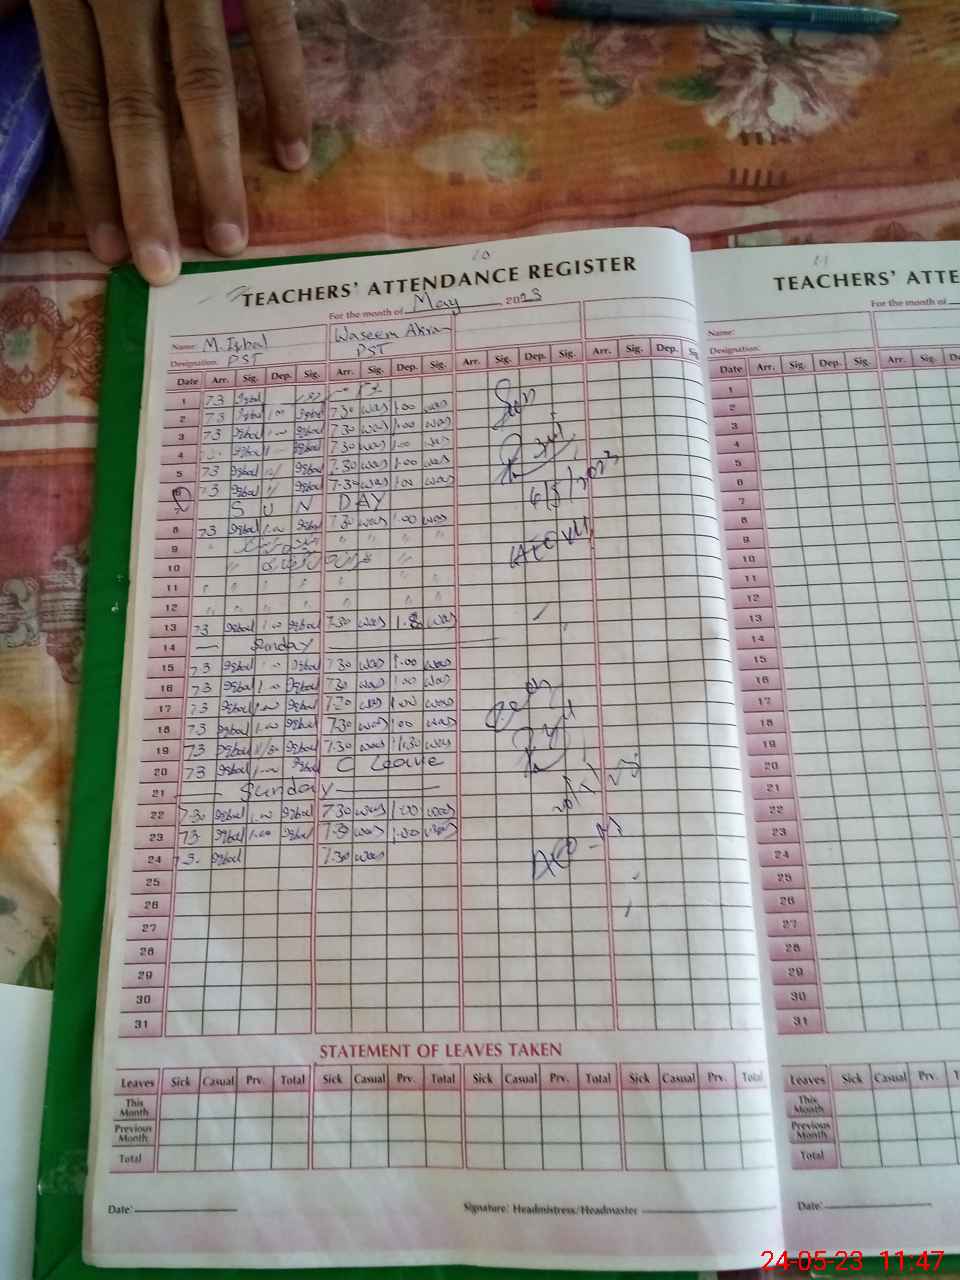 TEACHERS' ATTENDANCE REGISTER
For the month of May 2023
Name: M. Iqbal Waseem Akram
Designation: PST PST
Date Arr. Sig. Dep. Sig. Arr. Sig. Dep. Sig. Arr. Sig. Dep. Sig. Arr. Sig. Dep. Sig.
1 73 Iqbal
2 73 Iqbal 1.00 Iqbal 7.30 was 1.00 was
3 73 Iqbal 1.00 Iqbal 7.30 was 1.00 was
4 Iqbal Iqbal 7.30 was 1.00 was
5 73 Iqbal Iqbal 7.30 was 1.00 was
6 73 Iqbal Iqbal 7.30 was 1.00 was
7 SUN DAY 6/5/2023
8 73 Iqbal 1.00 Iqbal 7.30 was 1.00 was
9
10
11 " " " " " " " "
12 " " " " " " " "
13 73 Iqbal 1.00 Iqbal 7.30 was was
14 Sunday
15 73 Iqbal Iqbal 7.30 was 1.00 was
16 73 Iqbal 1.00 Iqbal 7.30 was 1.00 was
17 73 Iqbal 1.00 Iqbal 7.30 was 1.00 was
18 73 Iqbal 1.00 Iqbal 7.30 was 1.00 was
19 73 Iqbal 11/30 Iqbal 7.30 was 11.30 was
20 73 Iqbal Iqbal C Leave
21 Sunday
22 7.30 Iqbal 1.00 Iqbal 7.30 was 1.00 was
23 73 Iqbal 1.00 Iqbal 7.30 was 1.00 was
24 73. Iqbal 7.30 was
25
26
27
28
29
30
31
STATEMENT OF LEAVES TAKEN
Leaves Sick Casual Prv. Total Sick Casual Prv. Total Sick Casual Prv. Total Sick Casual Prv. Total
This Month
Previous Month
Total
Date: Signature: Headmistress/Headmaster
11
TEACHERS' ATTE
For the month of
Name:
Designation:
Date Arr. Sig. Dep. Sig. Arr. Sig.
1
2
3
4
5
6
7
8
9
10
11
12
13
14
15
16
17
18
19
20
21
22
23
24
25
26
27
28
29
30
31
Leaves Sick Casual Prv.
This Month
Previous Month
Total
Date:
24-05-23 11:47